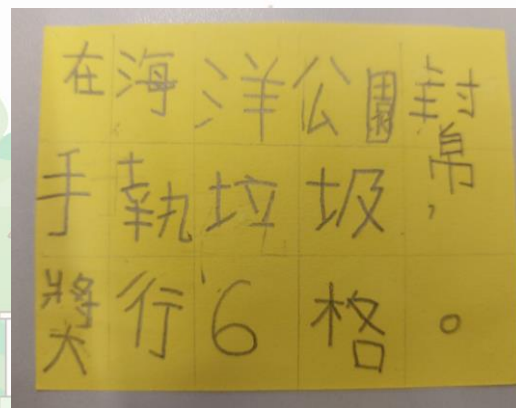 在海洋公園幫
手執垃圾,
獎行6格。